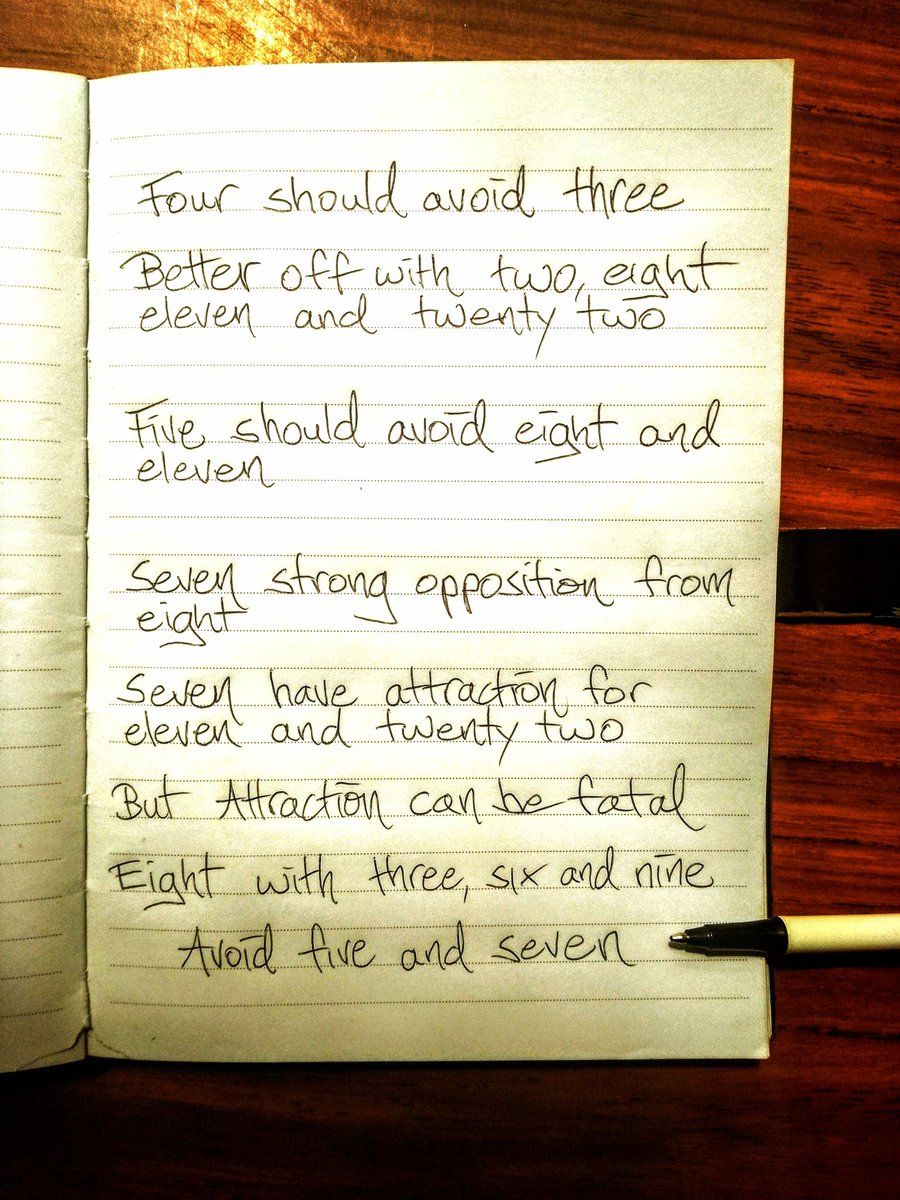 Four should avoid three
Better off with two, eight
eleven and twenty two
Five should avoid eight and
eleven
Seven strong opposition from
eight
Seven have attraction for
eleven and twenty two
But Attraction can be fatal
Eight with three, six and nine
Avoid five and seven